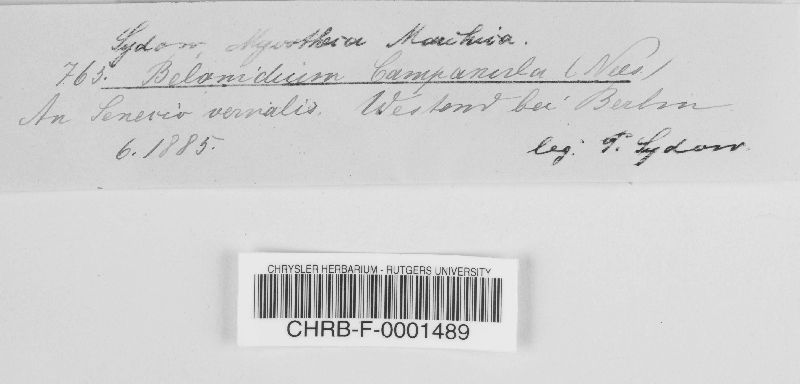 Sydow, Mycotheca Marchica.
763. Belonidium Campanula (Nees)
An Senecio vernalis. Westend bei Berlin
6. 1885. leg. P. Sydow.
CHRYSLER HERBARIUM - RUTGERS UNIVERSITY
CHRB-F-0001489